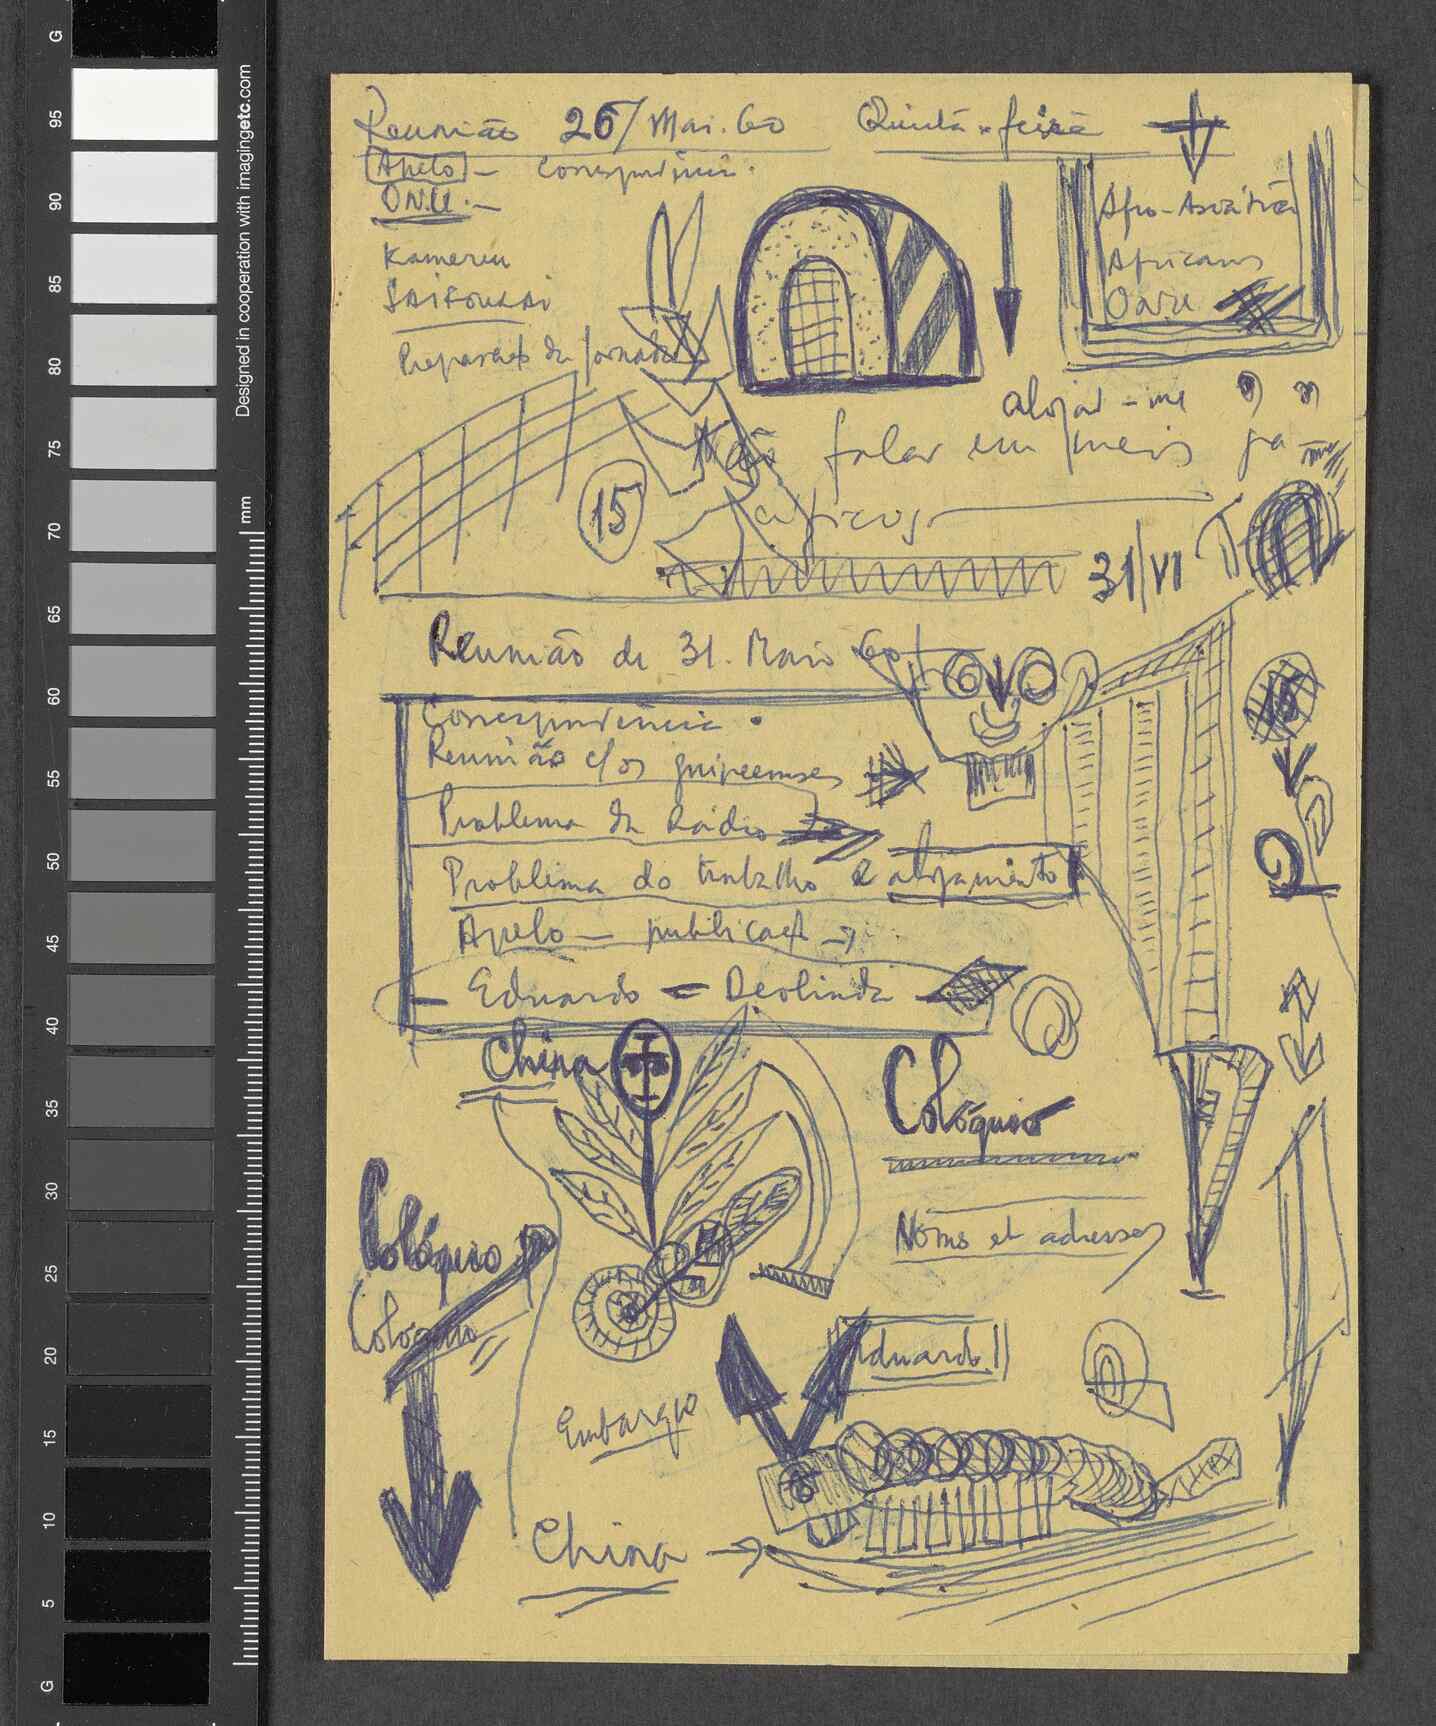 Reunião 26/Mai. 60 Quinta-feira
Apelo - Correspondência.
O.N.U. -
Afro-Asiática
Kamerun
Africanos
O.N.U
Preparação da Jornada
alojar-me
Não falar em
15
31/VI
Reunião de 31. Maio 60
Correspondência.
Reunião c/os guineenses
Problema da Rádio
Problema do trabalho e alojamento
Apelo - publicação
- Eduardo = Deolinda
China
Colóquio
Colóquio
Noms et adresses
Colóquio
Eduardo
Embargo
China
Designed in cooperation with imagingetc.com
mm
mm
G
95
90
85
80
75
70
65
60
55
50
45
40
35
30
25
20
15
10
5
G